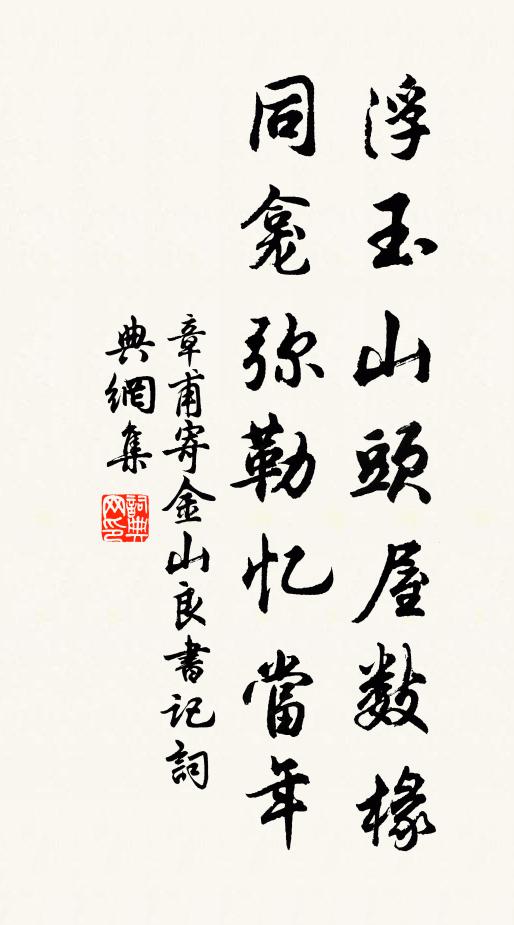 浮玉山頭屋数椽
同龛弥勒忆當年
章甫寄金山良書记詞
典網集
詞典
网印